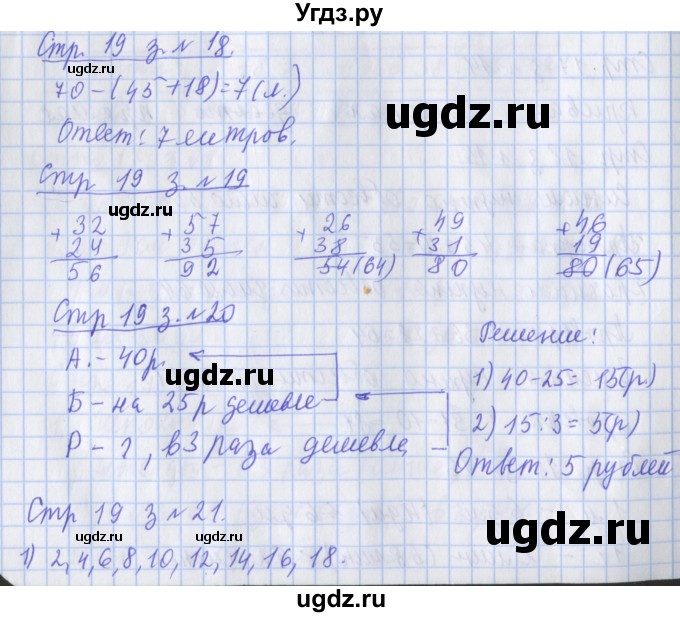 Угдз.ру
Стр. 19 з. № 18.
70-(45+18)=7(л.)
Ответ: 7 литров.
Стр 19 з. № 19
+32 +57 +26 +49 +46
24 35 38 31 19
56 92 54(64) 80 80(65)
Стр 19 з. № 20
А. - 40р.
Б - на 25р дешевле
Р - ?, в 3 раза дешевле
Решение:
1) 40-25= 15(р)
2) 15:3= 5(р)
Ответ: 5 рублей
Стр 19 з № 21.
1) 2,4,6,8,10,12,14,16,18.
ugdz.ru
ugdz.ru
ugdz.ru
ugdz.ru
ugdz.ru
ugdz.ru
ugdz.ru
ugdz.ru
ugdz.ru
ugdz.ru
ugdz.ru